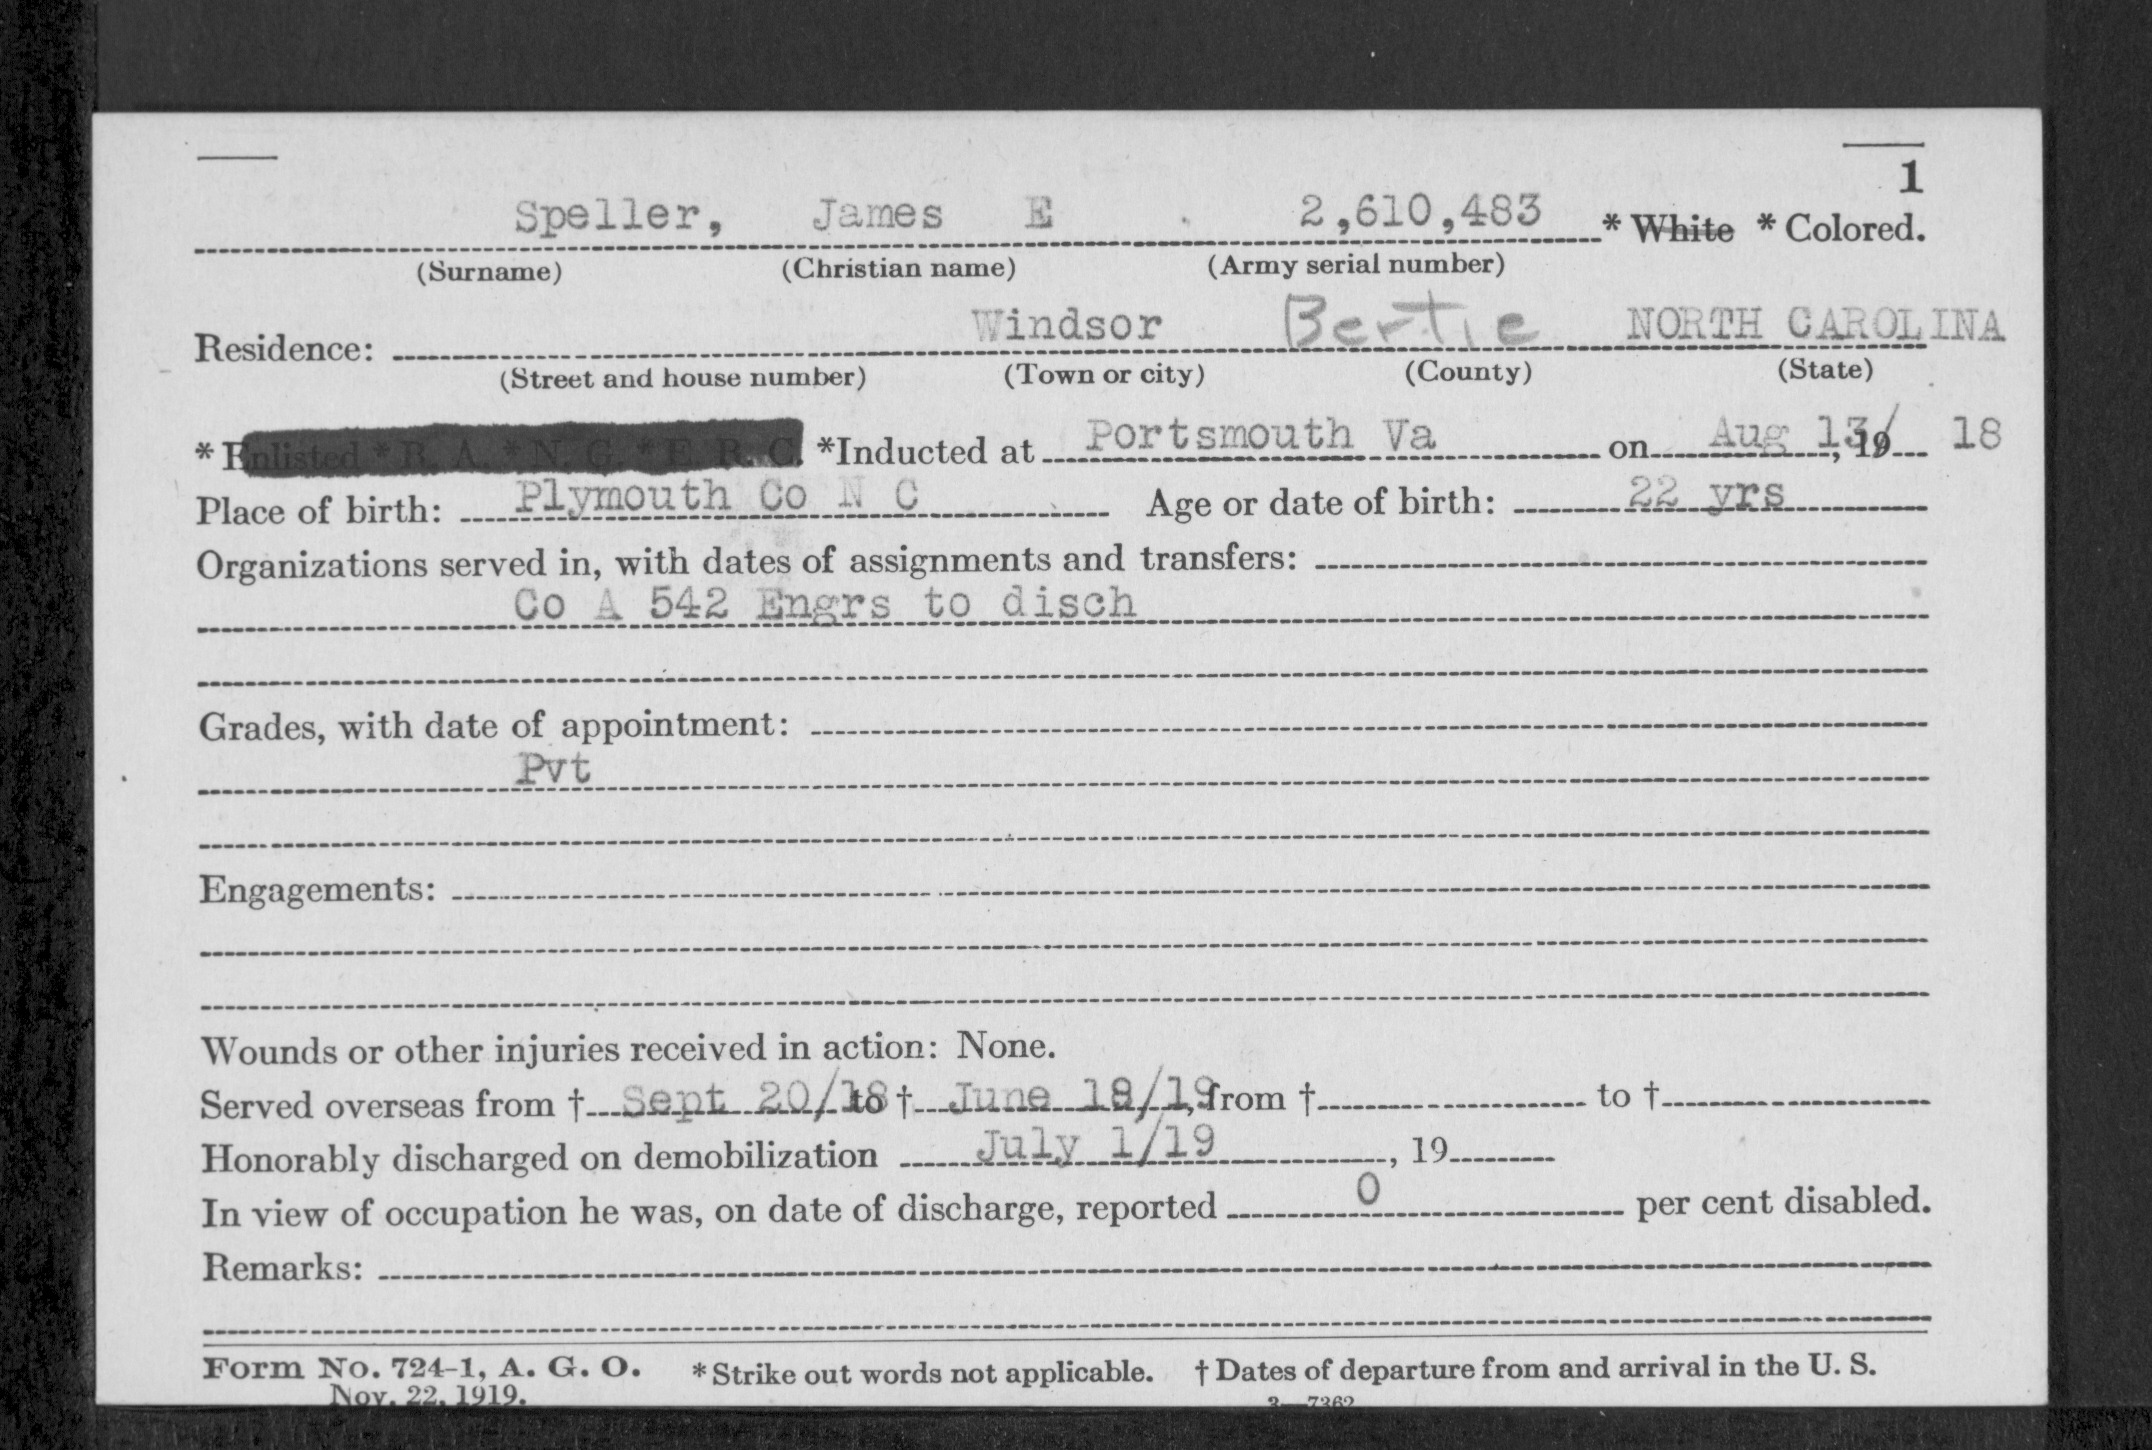 1
Speller, James E 2,610,483 * White * Colored.
(Surname) (Christian name) (Army serial number)
Residence: Windsor Bertie NORTH CAROLINA
(Street and house number) (Town or city) (County) (State)
* Enlisted * R. A. * N. G. * E. R. C. *Inducted at Portsmouth Va on Aug 13/, 19 18
Place of birth: Plymouth Co N C Age or date of birth: 22 yrs
Organizations served in, with dates of assignments and transfers:
Co A 542 Engrs to disch
Grades, with date of appointment:
Pvt
Engagements:
Wounds or other injuries received in action: None.
Served overseas from † Sept 20/18 to † June 18/19, from † to †
Honorably discharged on demobilization July 1/19, 19
In view of occupation he was, on date of discharge, reported 0 per cent disabled.
Remarks:
Form No. 724-1, A. G. O. * Strike out words not applicable. † Dates of departure from and arrival in the U. S.
Nov. 22, 1919. 3—7362